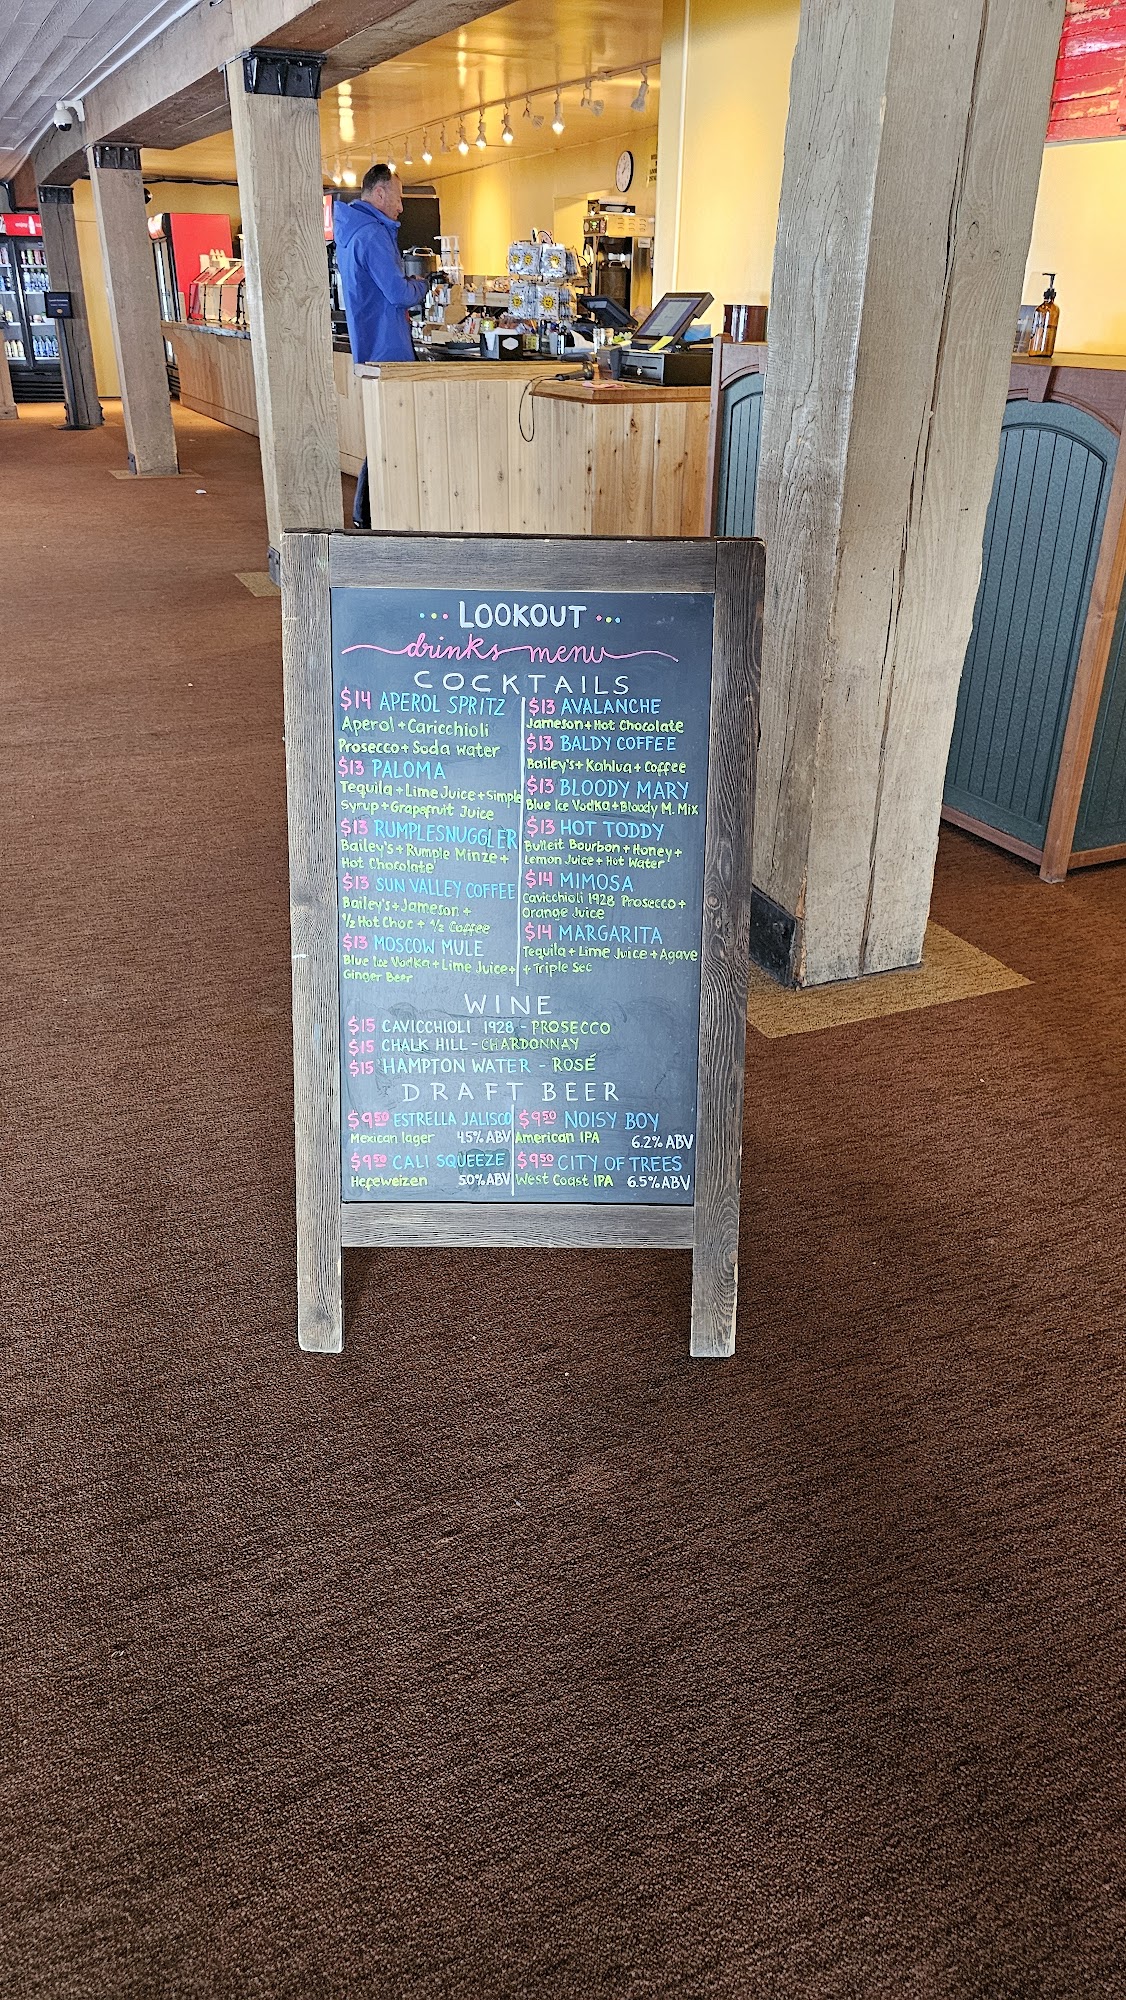 LOOKOUT
drinks menu
COCKTAILS
$14 APEROL SPRITZ
Aperol + Caricchioli
Prosecco + Soda water
$13 PALOMA
Tequila + Lime Juice + Simple
Syrup + Grapefruit Juice
$13 RUMPLESNUGGLER
Bailey's + Rumple Minze +
Hot Chocolate
$13 SUN VALLEY COFFEE
Bailey's + Jameson +
1/2 Hot Choc + 1/2 Coffee
$13 MOSCOW MULE
Blue Ice Vodka + Lime Juice +
Ginger Beer
$13 AVALANCHE
Jameson + Hot Chocolate
$13 BALDY COFFEE
Bailey's + Kahlua + Coffee
$13 BLOODY MARY
Blue Ice Vodka + Bloody M. Mix
$13 HOT TODDY
Bulleit Bourbon + Honey +
Lemon Juice + Hot Water
$14 MIMOSA
Cavicchioli 1928 Prosecco +
Orange Juice
$14 MARGARITA
Tequila + Lime Juice + Agave
+ Triple Sec
WINE
$15 CAVICCHIOLI 1928 - PROSECCO
$15 CHALK HILL - CHARDONNAY
$15 HAMPTON WATER - ROSÉ
DRAFT BEER
$9.50 ESTRELLA JALISCO
Mexican lager 4.5% ABV
$9.50 CALI SQUEEZE
Hefeweizen 5.0% ABV
$9.50 NOISY BOY
American IPA 6.2% ABV
$9.50 CITY OF TREES
West Coast IPA 6.5% ABV